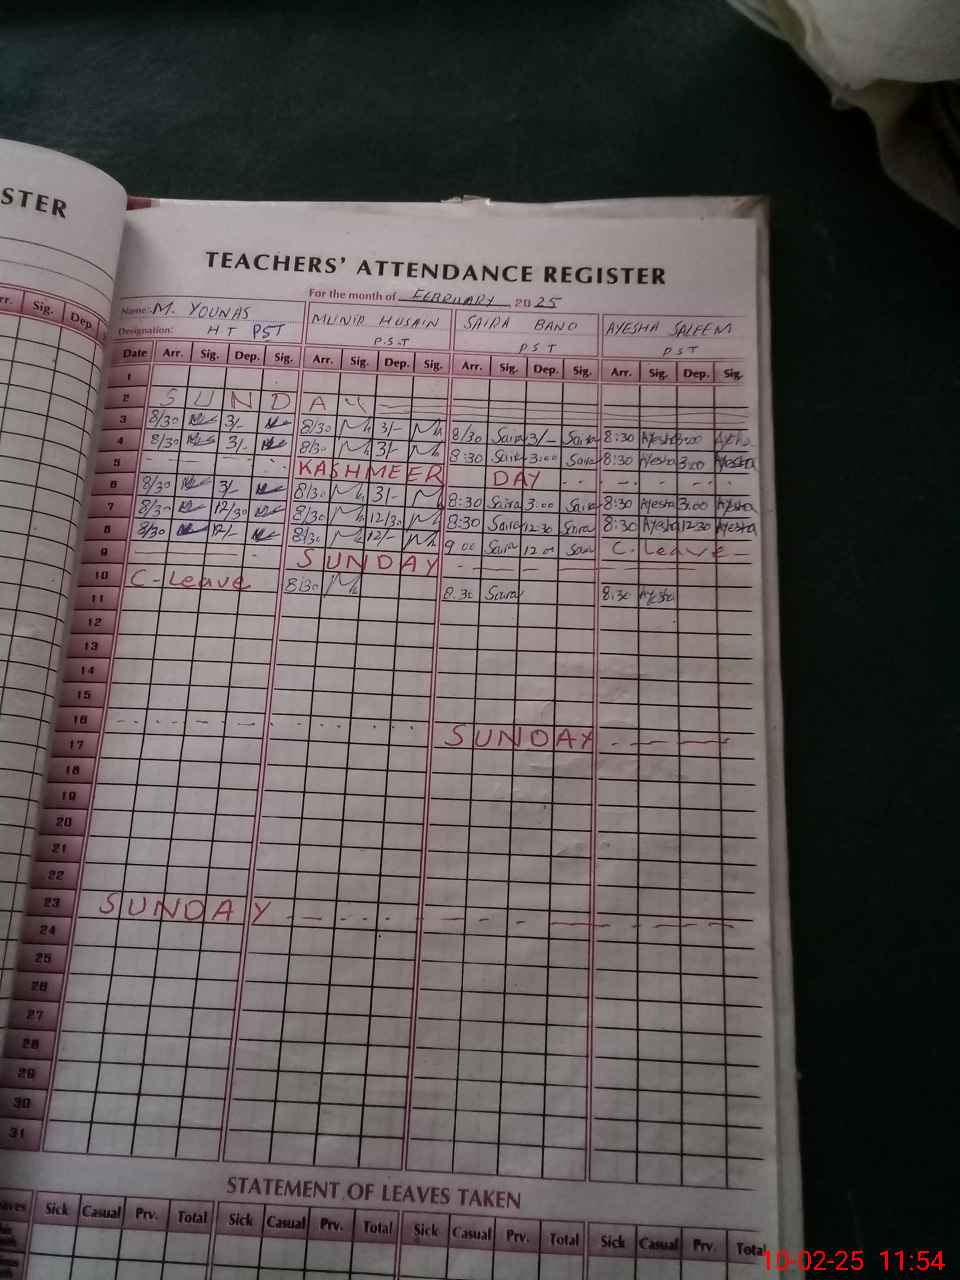 STER
TEACHERS' ATTENDANCE REGISTER
For the month of FEBRUARY 2025
Name: M. YOUNAS MUNIR HUSAIN SAIRA BANO AYESHA SALEEM
Designation: H T PST P.S.T P S T P S T
rr. Sig. Dep
Date Arr. Sig. Dep. Sig. Arr. Sig. Dep. Sig. Arr. Sig. Dep. Sig. Arr. Sig. Dep. Sig.
1
2 SUNDAY
3 8/30 3/- 8/30 3/- 8/30 Saira 3/- Saira 8:30 Ayesha 3:00 Ayesha
4 8/30 3/- 8/30 3/- 8:30 Saira 3:00 Saira 8:30 Ayesha 3:00 Ayesha
5 KASHMEER DAY
6 8/30 3/- 8/30 3/- 8:30 Saira 3:00 Saira 8:30 Ayesha 3:00 Ayesha
7 8/30 12/30 8/30 12/30 8:30 Saira 12:30 Saira 8:30 Ayesha 12:30 Ayesha
8 8/30 12/- 8/30 12/- 9 00 Saira 12 00 Saira C. Leave
9 SUNDAY
10 C-Leave 8/30 8.30 Saira 8:30 Ayesha
11
12
13
14
15
16 SUNDAY
17
18
19
20
21
22
23 SUNDAY
24
25
26
27
28
29
30
31
STATEMENT OF LEAVES TAKEN
eaves Sick Casual Prv. Total Sick Casual Prv. Total Sick Casual Prv. Total Sick Casual Prv. Total
10-02-25 11:54